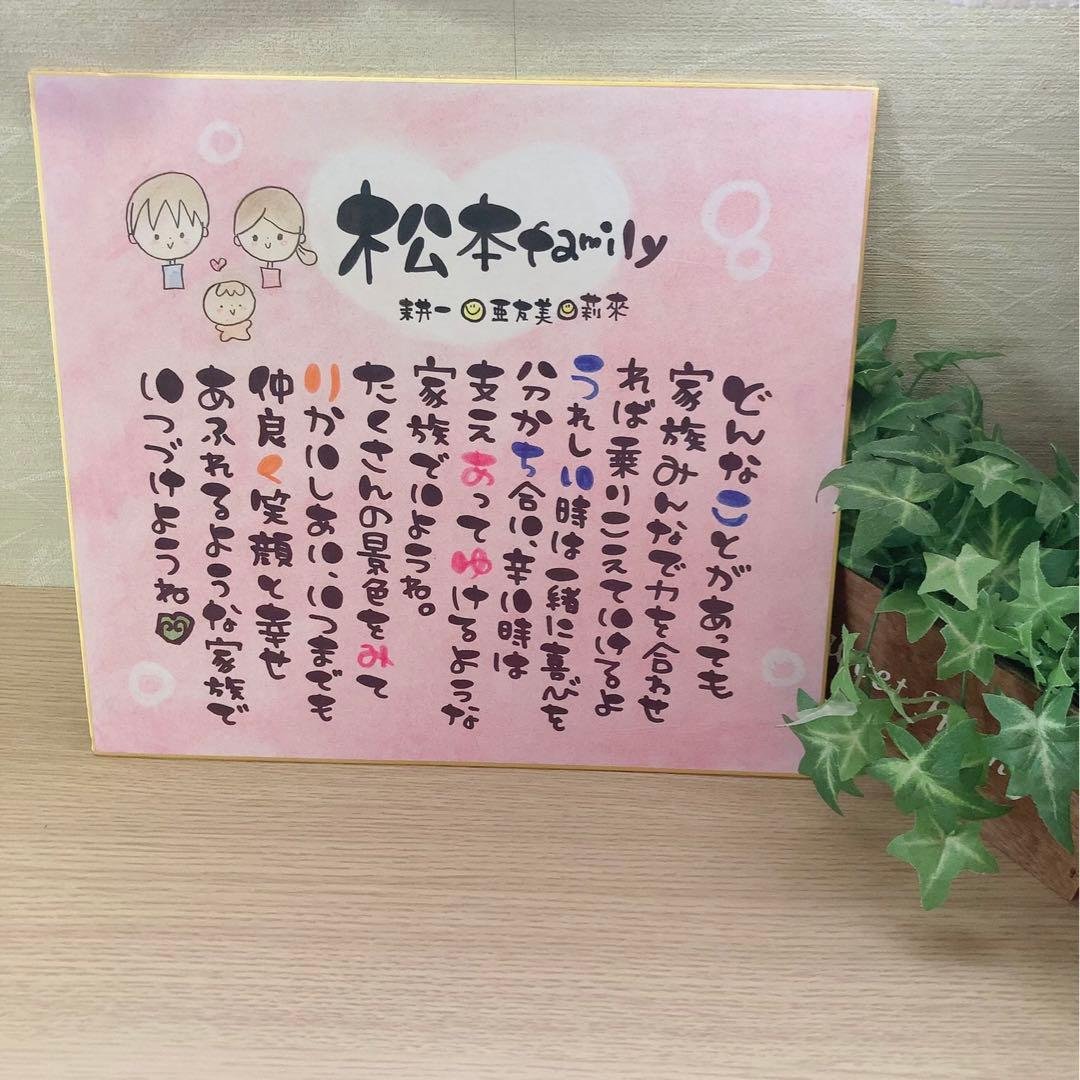 松本family
耕一 亜友美 莉來
どんなことがあっても
家族みんなで力を合わせ
れば乗りこえていけるよ
うれしい時は一緒に喜びを
分かち合い、辛い時は
支えあってゆけるような
家族でいようね。
たくさんの景色をみて
りかいしあい、いつまでも
仲良く笑顔と幸せ
あふれるような家族で
いつづけようね